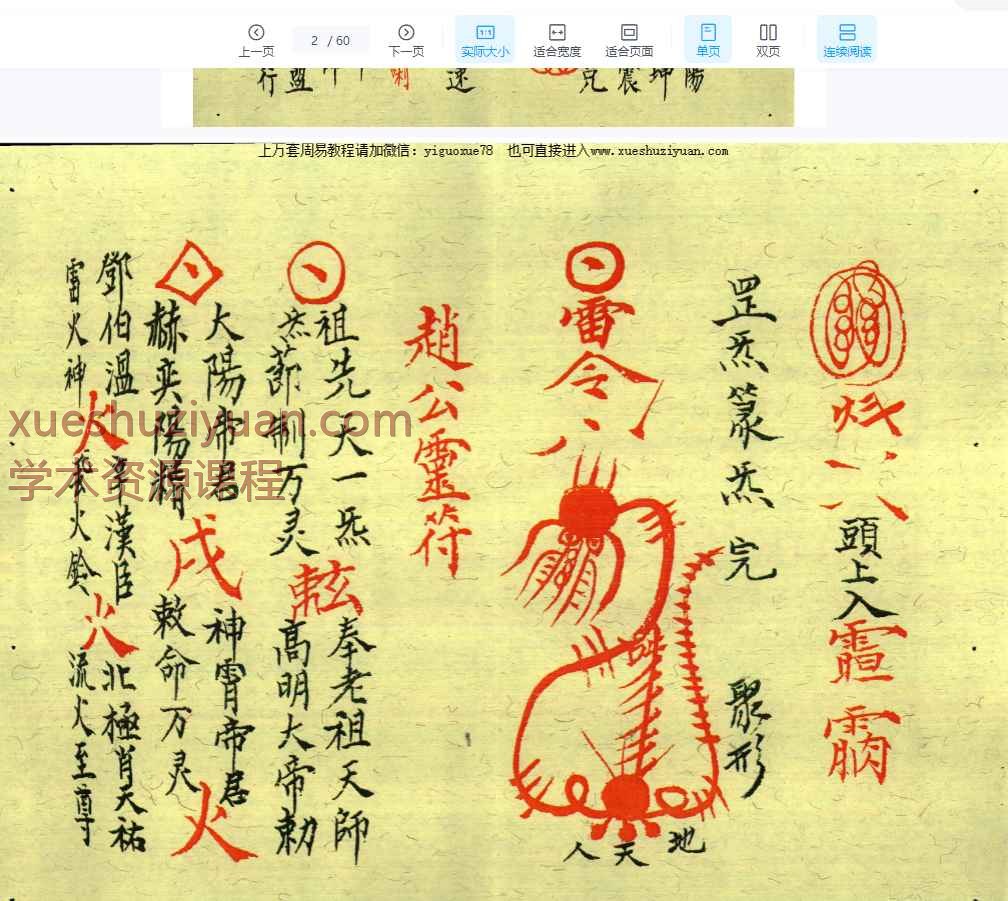 上一页
2 / 60
下一页
实际大小
适合宽度
适合页面
单页
双页
连续阅读
陽
坤
震
兑
速
喇
盥
行
上万套周易教程请加微信：yiguoxue78 也可直接进入www.xueshuziyuan.com
頭上入
罡炁篆炁完
聚形
雷令
地
天
人
趙公靈符
祖先天一炁
奉老祖天師
制万灵
高明大帝勅
太陽帝君
神霄帝君
赫奕陽精
敕命万灵
戌
火
鄧伯溫
辛漢臣
北極肖天祐
火
火
雷火神
火鈴
流火至尊
xueshuziyuan.com
学术资源课程